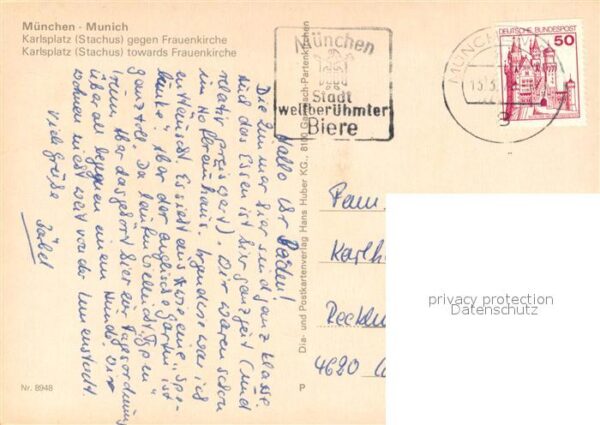 München - Munich
Karlsplatz (Stachus) gegen Frauenkirche
Karlsplatz (Stachus) towards Frauenkirche
München
Stadt
weltberühmter
Biere
MÜNCHEN
DEUTSCHE BUNDESPOST
50
Hallo Ihr Beiden!
Die Zimmer hier sind ganz klasse
und das Essen ist hier ganz gut (und
relativ preiswert). Wir waren schon
im Hofbräuhaus. Irgendwie war ich
enttäuscht. Es sieht aus wie eine "Spe-
lunke", aber der englische Garten ist
ganz toll. Da laufen vielleicht Typen
rum, aber das gehört hier zur Tagesordnung
überall begegnen einem Hunde. Wir
wohnen nicht weit von der Innenstadt.
Viele Grüße
Dia- und Postkartenverlag Hans Huber KG., 8100 Garmisch-Partenkirchen
P
Fam.
Karlh
Reckl
4620
privacy protection
Datenschutz
Nr. 8948